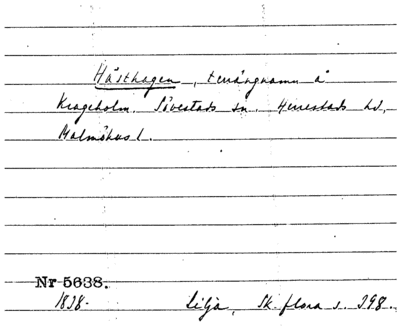 Hästhagen, terrängnamn å
Krageholm. Sövestads sn. Herrestads hd,
Malmöhus l.
Nr 5638.
1838. Lilja, Sk. flora s. 298.